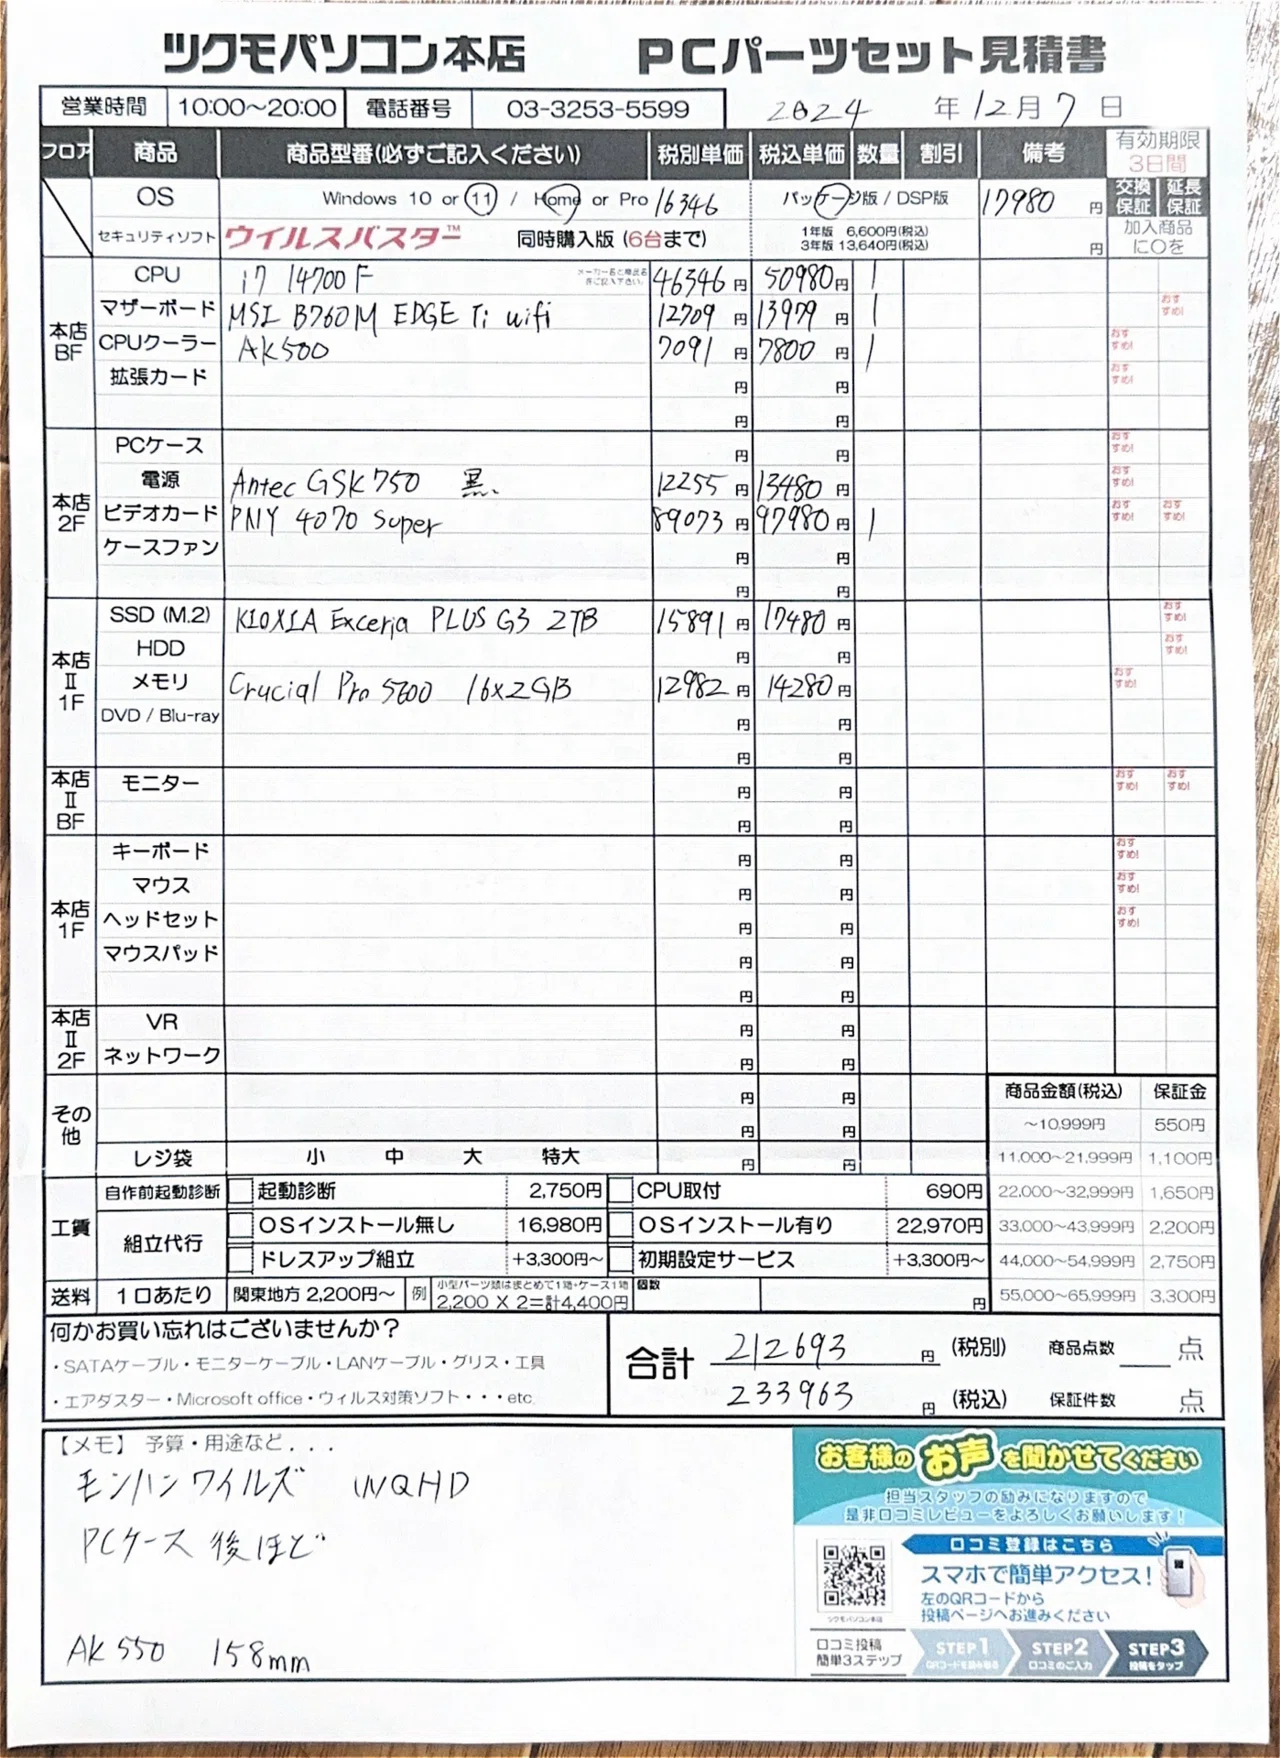 ツクモパソコン本店 PCパーツセット見積書
営業時間 10:00～20:00 電話番号 03-3253-5599 2024 年 12月 7 日
フロア 商品 商品型番(必ずご記入ください) 税別単価 税込単価 数量 割引 備考 有効期限
3日間
OS Windows 10 or 11 / Home or Pro 16346 パッケージ版 / DSP版 17980 円 交換保証 延長保証
セキュリティソフト ウイルスバスター™ 同時購入版 (6台まで) 1年版 6,600円(税込) 円 加入商品
3年版 13,640円(税込) に○を
本店BF
CPU i7 14700F メーカー名と商品名をご記入下さい。 46346 円 50980 円 1
マザーボード MSI B760M EDGE Ti wifi 12709 円 13979 円 1 おすすめ!
CPUクーラー AK500 7091 円 7800 円 1 おすすめ!
拡張カード 円 円 おすすめ!
円 円
本店2F
PCケース 円 円 おすすめ!
電源 Antec GSK750 黒 12255 円 13480 円 おすすめ!
ビデオカード PNY 4070 Super 89073 円 97980 円 1 おすすめ! おすすめ!
ケースファン 円 円
円 円
本店Ⅱ1F
SSD (M.2) KIOXIA Exceria PLUS G3 2TB 15891 円 17480 円 おすすめ!
HDD 円 円 おすすめ!
メモリ Crucial Pro 5600 16x2GB 12982 円 14280 円 おすすめ!
DVD / Blu-ray 円 円
円 円
本店ⅡBF
モニター 円 円 おすすめ! おすすめ!
円 円
本店1F
キーボード 円 円 おすすめ!
マウス 円 円 おすすめ!
ヘッドセット 円 円 おすすめ!
マウスパッド 円 円
円 円
本店Ⅱ2F
VR 円 円
ネットワーク 円 円
その他 円 円 商品金額(税込) 保証金
円 円 ～10,999円 550円
レジ袋 小 中 大 特大 円 円 11,000～21,999円 1,100円
工賃
自作前起動診断 起動診断 2,750円 CPU取付 690円 22,000～32,999円 1,650円
組立代行 OSインストール無し 16,980円 OSインストール有り 22,970円 33,000～43,999円 2,200円
ドレスアップ組立 +3,300円～ 初期設定サービス +3,300円～ 44,000～54,999円 2,750円
送料 1口あたり 関東地方 2,200円～ 例 小型パーツ類はまとめて1箱・ケース1箱 2,200 X 2=計4,400円 個数 円 55,000～65,999円 3,300円
何かお買い忘れはございませんか?
・SATAケーブル・モニターケーブル・LANケーブル・グリス・工具
・エアダスター・Microsoft office・ウィルス対策ソフト・・・etc.
合計 212693 円 (税別) 商品点数 点
233963 円 (税込) 保証件数 点
【メモ】 予算・用途など...
モンハンワイルズ WQHD
PCケース 後ほど
AK550 158mm
お客様のお声を聞かせてください
担当スタッフの励みになりますので
是非口コミレビューをよろしくお願いします!
口コミ登録はこちら
スマホで簡単アクセス!
左のQRコードから
投稿ページへお進みください
ツクモパソコン本店
口コミ投稿
簡単3ステップ
STEP1 QRコードを読み取る
STEP2 口コミのご入力
STEP3 投稿をタップ